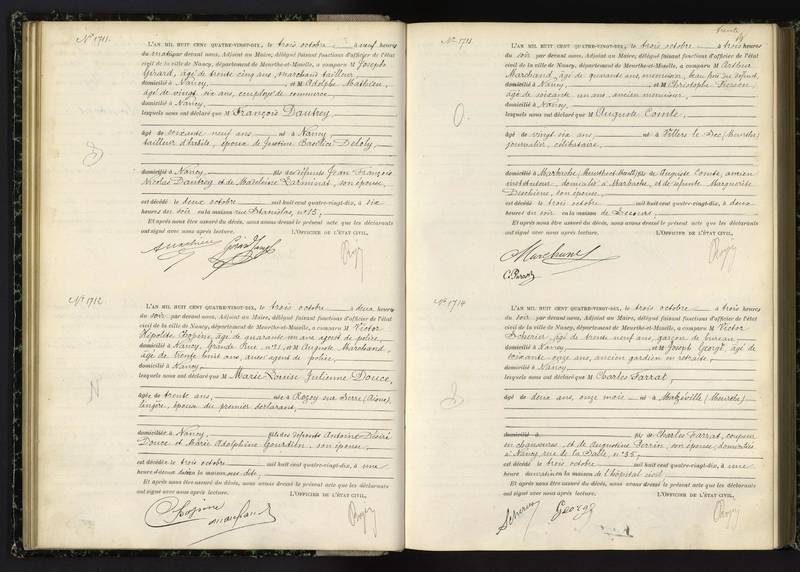 N° 1711.
L'AN MIL HUIT CENT QUATRE-VINGT-DIX, le trois octobre à neuf heures
du matin par devant nous, Adjoint au Maire, délégué faisant fonctions d'officier de l'état
civil de la ville de Nancy, département de Meurthe-et-Moselle, a comparu M Joseph
Girard, âgé de trente cinq ans, marchand tailleur,
domicilié à Nancy, et M Adolphe Mathieu,
âgé de vingt six ans, employé de commerce,
domicilié à Nancy,
lesquels nous ont déclaré que M François Dautrey
âgé de soixante neuf ans, né à Nancy
tailleur d'habits, époux de Justine Basilice
domicilié à Nancy, fils des défunts Jean François
Nicolas Dautrey et de Madeleine Larminat, son épouse,
est décédé le deux octobre mil huit cent quatre-vingt-dix, à six
heures du soir en la maison rue Stanislas, n° 15,
Et après nous être assuré du décès, nous avons dressé le présent acte que les déclarants
ont signé avec nous après lecture. L'OFFICIER DE L'ÉTAT CIVIL,
N° 1712
L'AN MIL HUIT CENT QUATRE-VINGT-DIX, le trois octobre à deux heures
du soir par devant nous, Adjoint au Maire, délégué faisant fonctions d'officier de l'état
civil de la ville de Nancy, département de Meurthe-et-Moselle, a comparu M Victor
Hipolite Chopine, âgé de quarante un ans, agent de police,
domicilié à Nancy, Grande Rue, n° 21, et M Auguste Marchand,
âgé de trente huit ans, aussi agent de police,
domicilié à Nancy,
lesquels nous ont déclaré que M Marie Louise Julienne Douce,
âgée de trente ans, née à Rozoy sur Serre (Aisne),
lingère, épouse du premier déclarant,
domiciliée à Nancy, fille des défunts Antoine Désiré
Douce et Marie Adolphine Gourdien, son épouse
est décédée le trois octobre mil huit cent quatre-vingt-dix, à une
heure du soir en la maison sus dite,
Et après nous être assuré du décès, nous avons dressé le présent acte que les déclarants
ont signé avec nous après lecture. L'OFFICIER DE L'ÉTAT CIVIL,
Chopine
Marchand
N° 1713
L'AN MIL HUIT CENT QUATRE-VINGT-DIX, le trois octobre à trois heures
du soir par devant nous, Adjoint au Maire, délégué faisant fonctions d'officier de l'état
civil de la ville de Nancy, département de Meurthe-et-Moselle, a comparu M Arthur
Marchand, âgé de quarante ans, menuisier, beau frère du défunt,
domicilié à Nancy, et M Christophe Pierson,
âgé de soixante un ans, ancien menuisier,
domicilié à Nancy,
lesquels nous ont déclaré que M Auguste Comte,
âgé de vingt six ans, né à Villers le Sec (Meurthe)
journalier, célibataire,
domicilié à Marbache, (Meurthe et Moselle), fils de Auguste Comte, ancien
instituteur, domicilié à Marbache, et de défunte Marguerite
son épouse,
est décédé le trois octobre mil huit cent quatre-vingt-dix, à deux
heures du soir en la maison de Secours,
Et après nous être assuré du décès, nous avons dressé le présent acte que les déclarants
ont signé avec nous après lecture. L'OFFICIER DE L'ÉTAT CIVIL,
Marchand
N° 1714
L'AN MIL HUIT CENT QUATRE-VINGT-DIX, le trois octobre à trois heures
du soir par devant nous, Adjoint au Maire, délégué faisant fonctions d'officier de l'état
civil de la ville de Nancy, département de Meurthe-et-Moselle, a comparu M Victor
Scherier, âgé de trente neuf ans, garçon de bureau,
domicilié à Nancy, et M Joseph George, âgé de
soixante onze ans, ancien gardien en retraite,
domicilié à Nancy,
lesquels nous ont déclaré que M Charles Farrat,
âgé de deux ans, onze mois né à Malzéville (Meurthe)
domicilié à fils de Charles Farrat, coupeur
en chaussures, et de Augustine Perrin, son épouse, domiciliés
à Nancy, rue de la Salle, n° 35,
est décédé le trois octobre mil huit cent quatre-vingt-dix, à une
heure du matin en la maison de l'hôpital civil,
Et après nous être assuré du décès, nous avons dressé le présent acte que les déclarants
ont signé avec nous après lecture. L'OFFICIER DE L'ÉTAT CIVIL,
Scherier
George